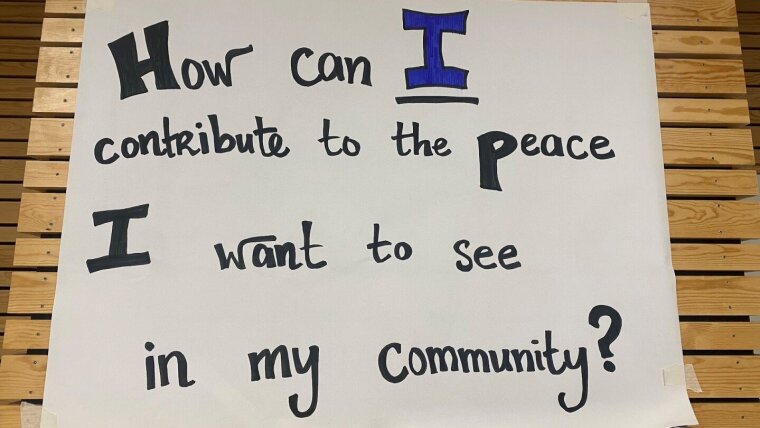 How can I
contribute to the Peace
I want to see
in my community?